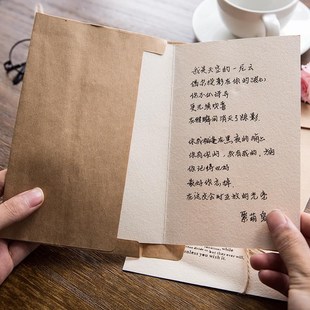 我是天空的一片云
偶尔投影在你的波心
你不必讶异
更无须欢喜
在转瞬间消灭了踪影
你我相逢在黑夜的海上
你有你的，我有我的，方向
你记得也好
最好你忘掉
在这交会时互放的光亮
while
unless you wish it.